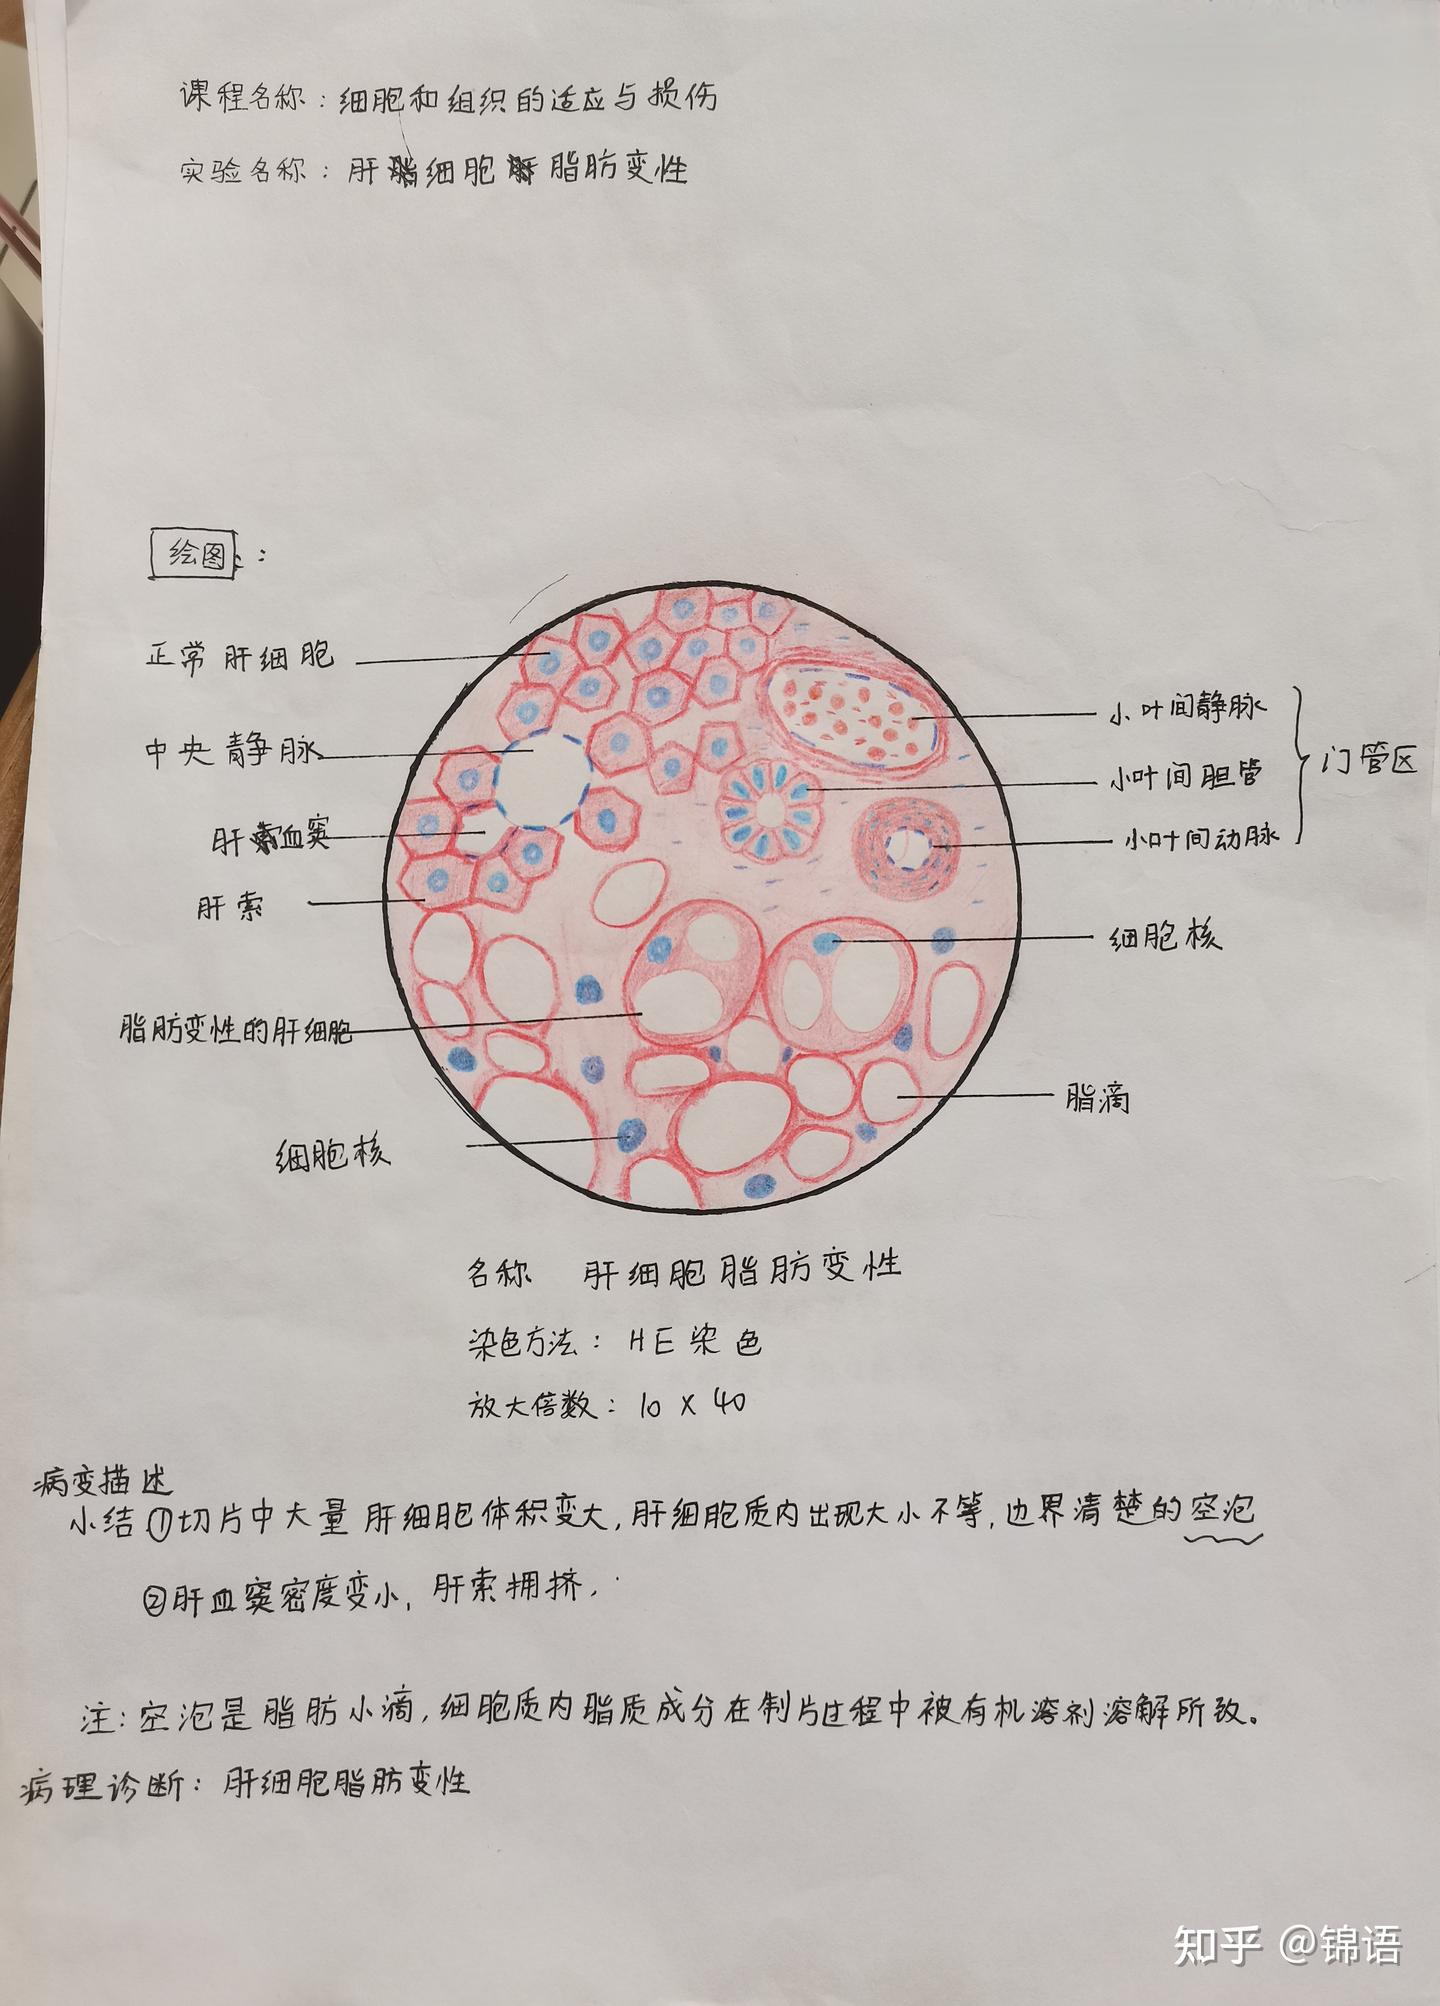 课程名称：细胞和组织的适应与损伤
实验名称：肝细胞脂肪变性
绘图：
正常肝细胞
中央静脉
肝血窦
肝索
脂肪变性的肝细胞
细胞核
小叶间静脉
小叶间胆管
小叶间动脉
门管区
细胞核
脂滴
名称 肝细胞脂肪变性
染色方法：HE染色
放大倍数：10×40
病变描述
小结①切片中大量肝细胞体积变大，肝细胞质内出现大小不等，边界清楚的空泡
②肝血窦密度变小，肝索拥挤．
注：空泡是脂肪小滴，细胞质内脂质成分在制片过程中被有机溶剂溶解所致。
病理诊断：肝细胞脂肪变性
知乎 @锦语